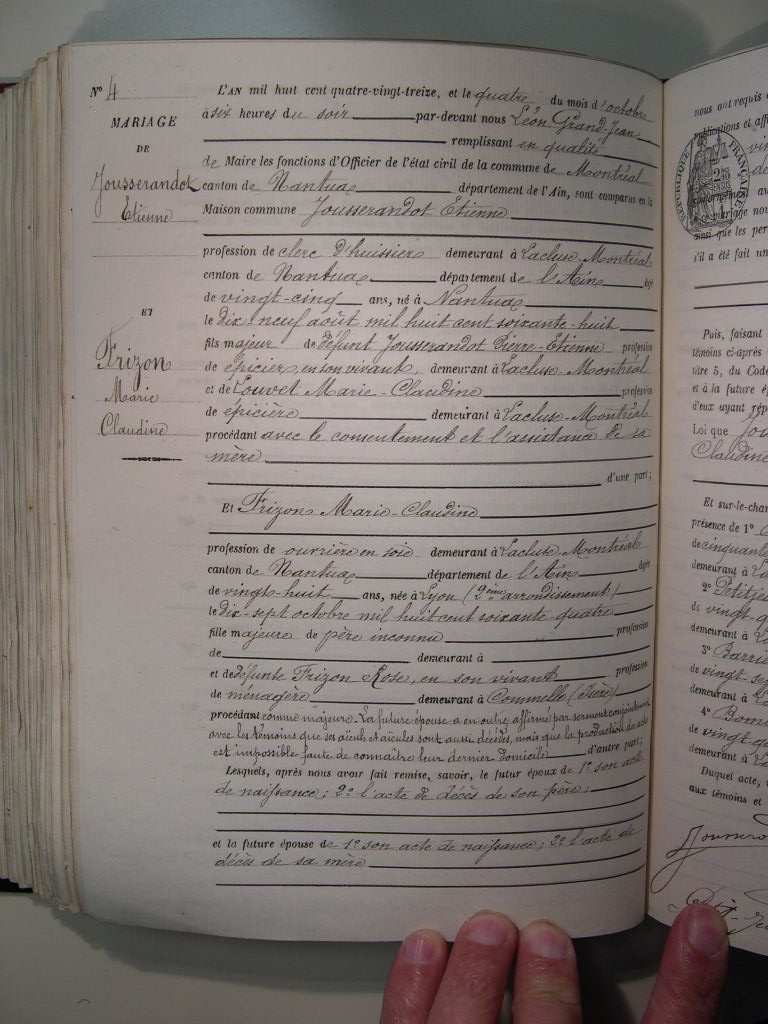 N° 4
MARIAGE
DE
Jousserandot
Etienne
ET
Frizon
Marie
Claudine
L'AN mil huit cent quatre-vingt-treize, et le quatre du mois d'octobre
à six heures du soir par-devant nous Léon Grand-Jean
remplissant en qualité
de Maire les fonctions d'Officier de l'état civil de la commune de Montréal
canton de Nantua département de l'Ain, sont comparus en la
Maison commune Jousserandot Etienne
profession de clerc d'huissier demeurant à Lacluse Montréal
canton de Nantua département de l'Ain âgé
de vingt-cinq ans, né à Nantua
le dix-neuf août mil huit cent soixante-huit
fils majeur de défunt Jousserandot Pierre-Etienne profession
de épicier en son vivant, demeurant à Lacluse-Montréal
et de Louvet Marie-Claudine profession
de épicière demeurant à Lacluse-Montréal
procédant avec le consentement et l'assistance de sa
mère
d'une part;
Et Frizon Marie-Claudine
profession de ouvrière en soie demeurant à Lacluse Montréal
canton de Nantua département de l'Ain âgée
de vingt-huit ans, née à Lyon (2ème arrondissement)
le dix-sept octobre mil huit cent soixante-quatre
fille majeure de père inconnu profession
de demeurant à
et de défunte Frizon Rose, en son vivant profession
de ménagère demeurant à Commelle (Isère)
procédant comme majeure. La future épouse a en outre affirmé par serment conjointement
avec les témoins que ses aïeuls et aïeules sont aussi décédés, mais que la production des actes
est impossible faute de connaître leur dernier domicile d'autre part;
Lesquels, après nous avoir fait remise, savoir, le futur époux de 1° son acte
de naissance; 2° l'acte de décès de son père;
et la future épouse de 1° son acte de naissance; 2° l'acte de
décès de sa mère
nous ont requis
publications et aff
RÉPUBLIQUE FRANÇAISE
conformément
ainsi que les per
s'il a été fait un
Puis, faisant
témoins ci-après
titre 5, du Code
et à la future é
d'eux ayant rép
Loi que Jou
Claudine
Et sur-le-char
présence de 1°
de cinquante
demeurant à
2° Petitje
de vingt-q
demeurant à L
3° Barri
de vingt-se
demeurant à
4°
de vingt-q
demeurant à
Duquel acte,
aux témoins et